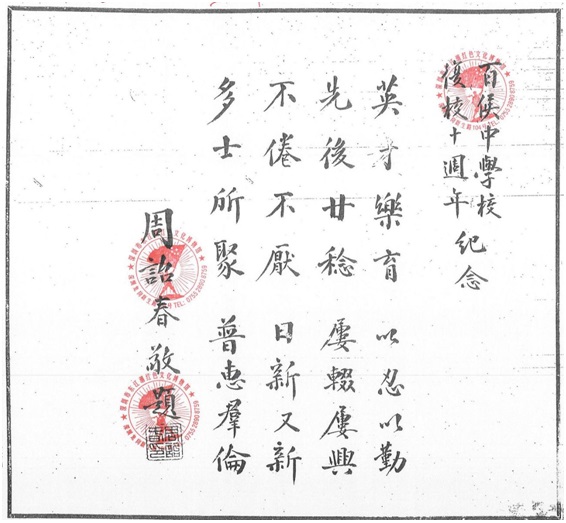 百侯中學校
復校十週年紀念
英才樂育 以忍以勤
先後廿稔 屢輟屢興
不倦不厭 日新又新
多士所聚 普惠羣倫
周詒春敬題